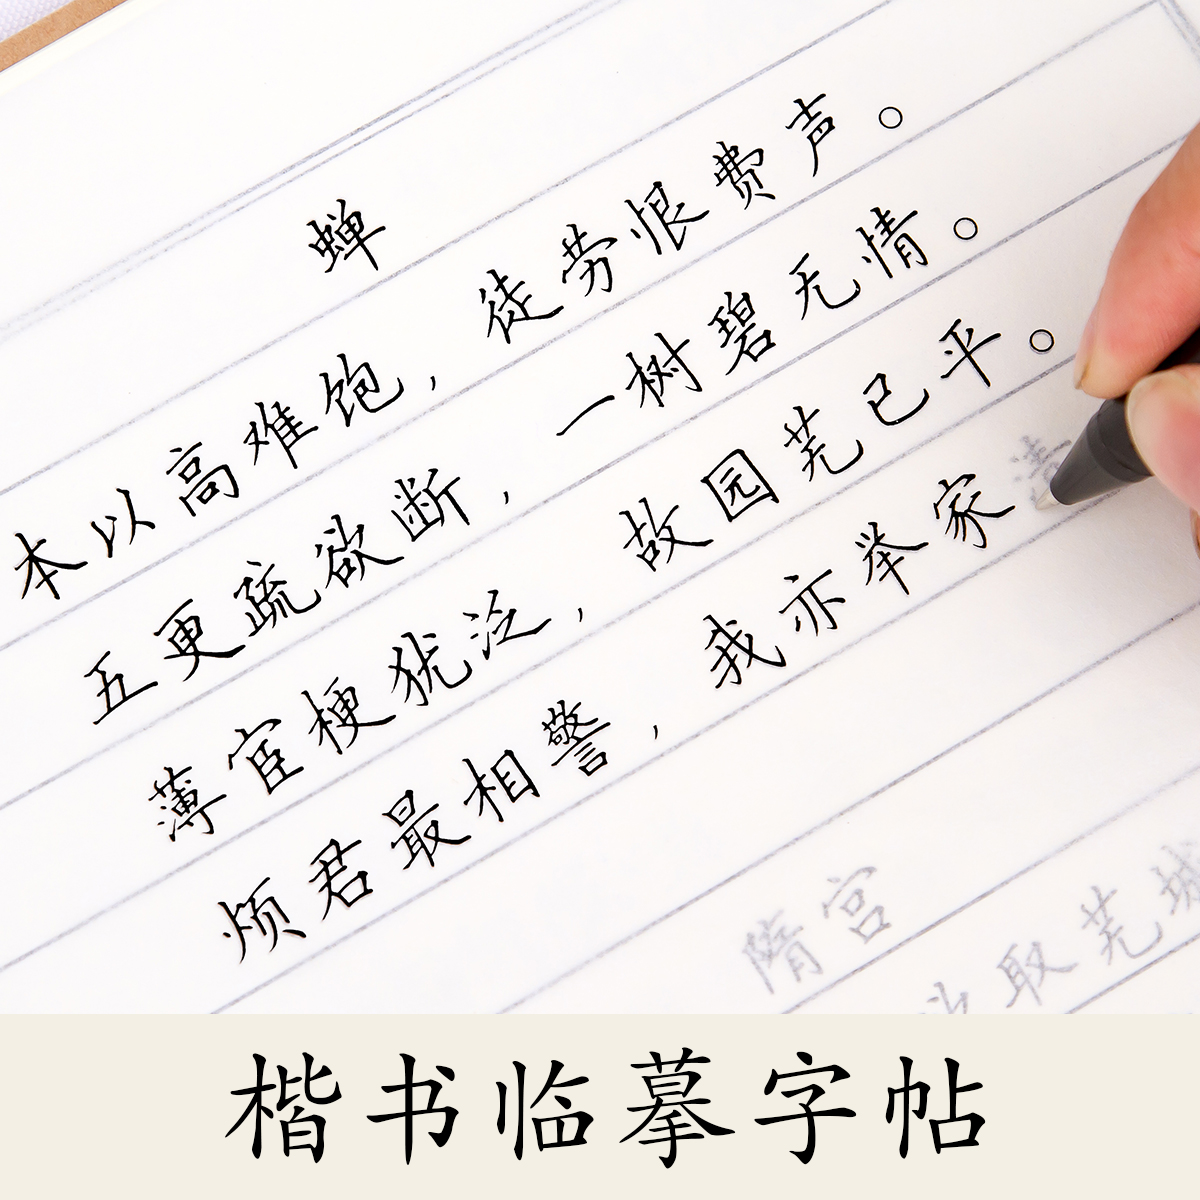 蝉
本以高难饱，徒劳恨费声。
五更疏欲断，一树碧无情。
薄宦梗犹泛，故园芜已平。
烦君最相警，我亦举家清
隋宫
取芜城
楷书临摹字帖